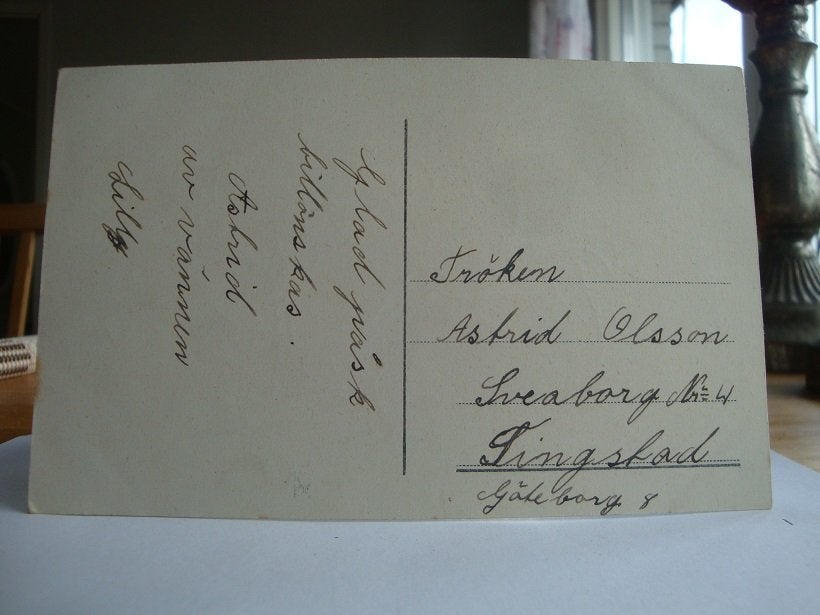 Glad påsk
tillönskas.
Astrid
av vännen
Lilly
Fröken
Astrid Olsson
Sveaborg Nr= 4
Tingstad
Göteborg 8